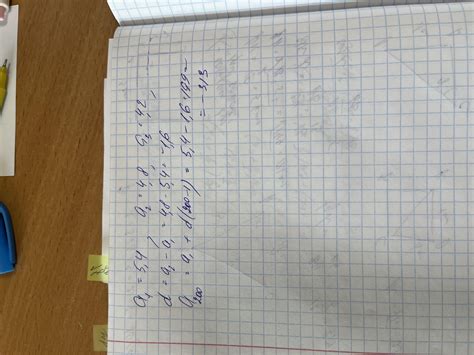 a₁ = 5,4   a₂ = 4,8   a₃ = 4,2
d = a₂ - a₁ = 4,8 - 5,4 = -1,6
a₂₀₀ = a₁ + d(200-1) = 5,4 - 1,6·199 =
= -313